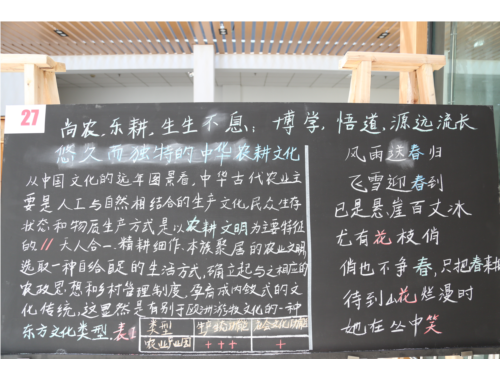 27
尚农,乐耕,生生不息;博学,悟道,源远流长
悠久而独特的中华农耕文化
从中国文化的远年图景看,中华古代农业主
要是人工与自然相结合的生产文化,民众生存
状态和物质生产方式是以农耕文明为主要特征
的"天人合一,精耕细作,本族聚居的农业文明,
选取一种自给自足的生活方式,确立起与之相应的
农政思想和乡村管理制度,孕育成内敛式的文
化传统,这显然是有别于欧洲游牧文化的一种
东方文化类型,表1
类型 生产 功能 社会文化功能
农业产业园 +++ +
风雨送春归
飞雪迎春到
已是悬崖百丈冰
尤有花枝俏
俏也不争春,只把春来报
待到山花烂漫时
她在丛中笑